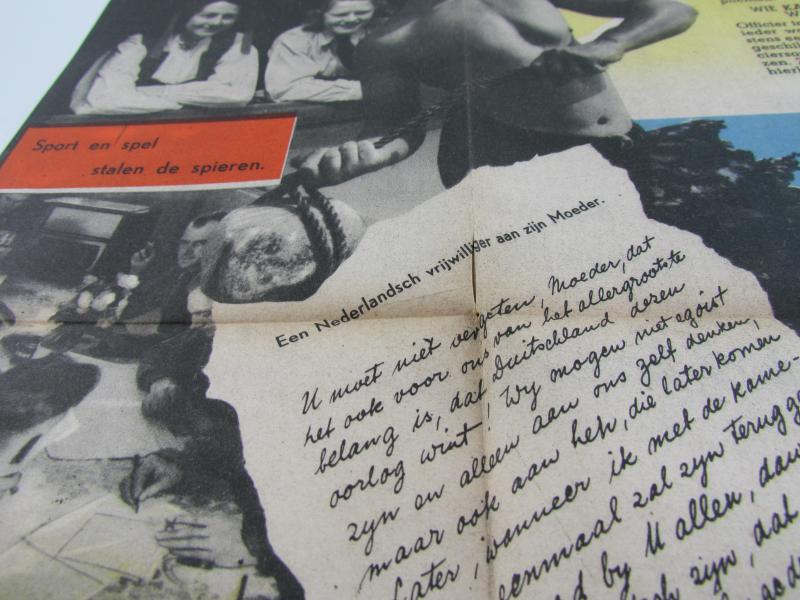 WIE KA
Officier in
ieder w
stens ee
geschi
cierso
zen.
hierl
Sport en spel
stalen de spieren.
Een Nederlandsch vrijwilliger aan zijn Moeder.
U moet niet vergeten, Moeder, dat
het ook voor ons van het allergrootste
belang is, dat Duitschland deren
oorlog wint! Wy mogen niet egoist
zyn en alleen aan ons zelf denken,
maar ook aan heh, die later komen
later, wanneer ik met de kame-
eenmaal zal zyn terugge
d by U allen, dan
zyn, dat